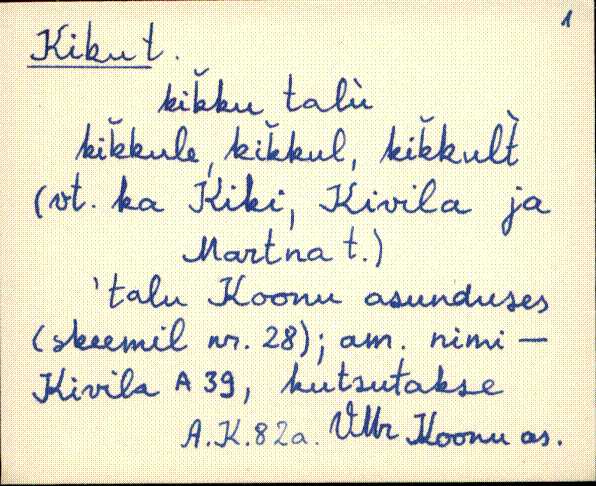 1
Kiku t.
kik̆ku talù
kik̆kule, kik̆kul, kik̆kult̀
(vt. ka Kiki, Kivila ja
Martna t.)
'talu Koonu asunduses
(skeemil nr. 28); am. nimi —
Kivila A 39, kutsutakse
A.K.82a. VMr Koonu as.